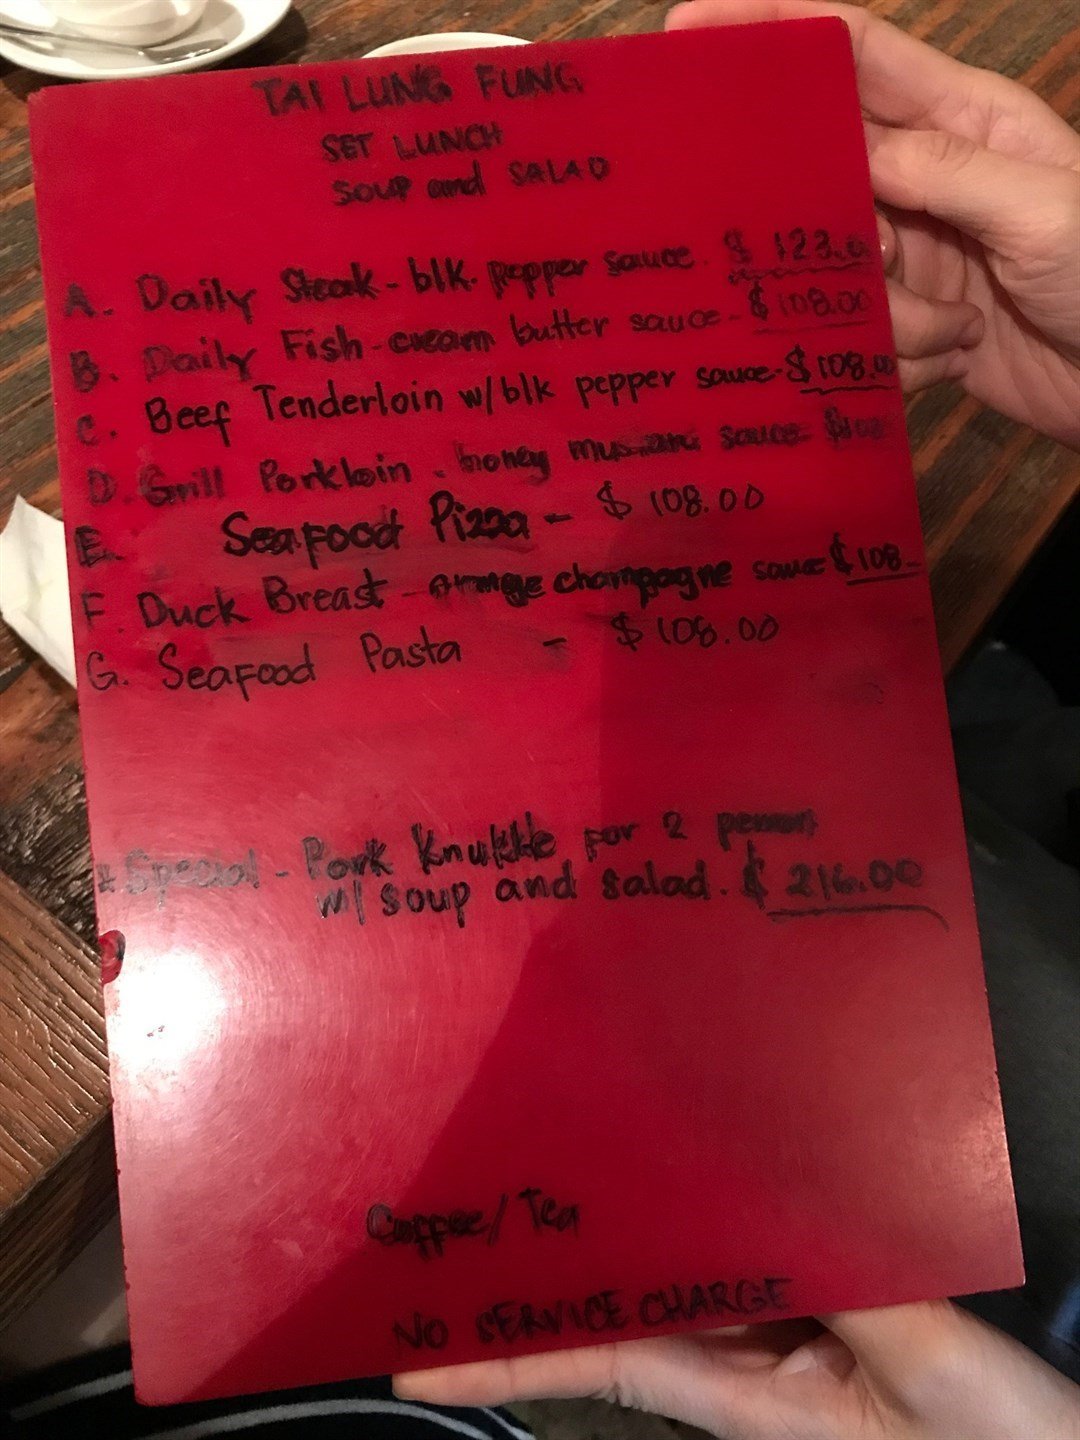 TAI LUNG FUNG
SET LUNCH
SOUP and SALAD
A. Daily Steak - blk. pepper sauce. $ 123.0
B. Daily Fish - cream butter sauce - $108.00
C. Beef Tenderloin w/ blk pepper sauce - $108.00
D. Grill Porkloin - honey mustard sauce $108
E. Seafood Pizza - $ 108.00
F. Duck Breast - orange champagne sauce $108-
G. Seafood Pasta - $ 108.00
* Special - Pork Knukkle for 2 person
w/ soup and salad. $ 216.00
Coffee/ Tea
NO SERVICE CHARGE